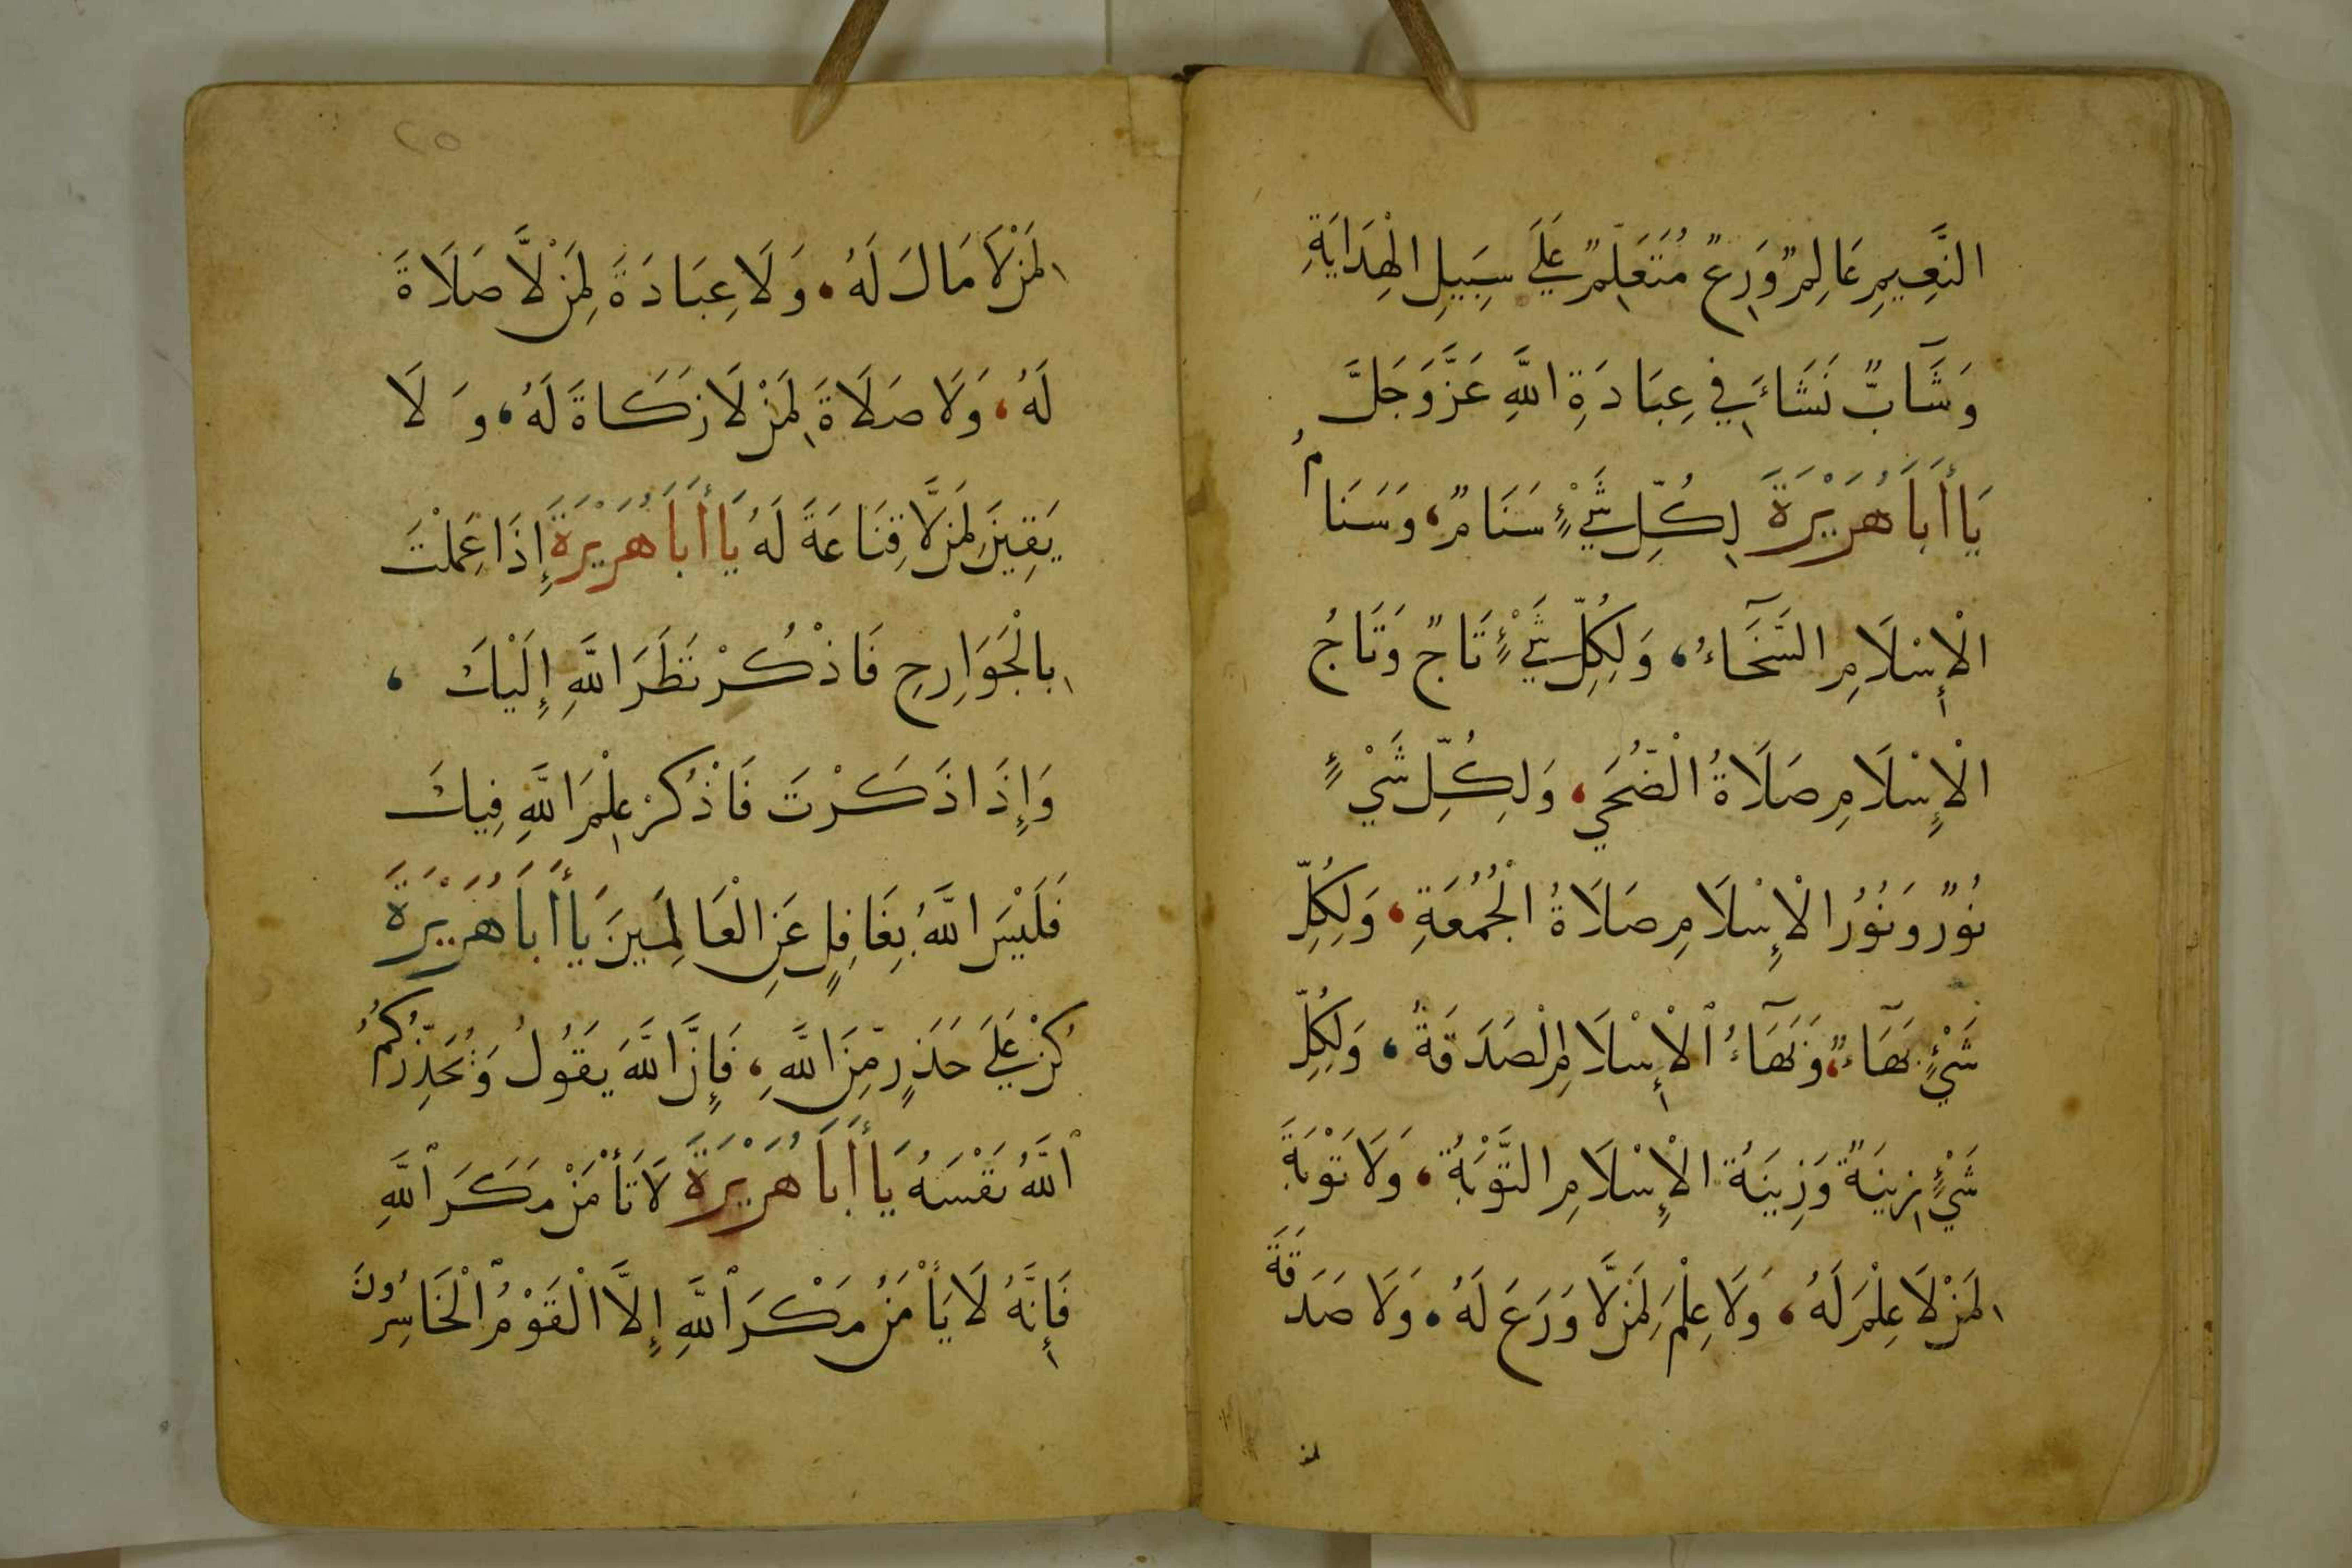 النَّعِيمِ عَالِمٌ وَرِعٌ مُتَعَلِّمٌ عَلَى سَبِيلِ الْهِدَايَةِ
وَشَآبٌّ نَشَاءَ فِي عِبَادَةِ اللَّهِ عَزَّ وَجَلَّ
يَا أَبَا هُرَيْرَةَ لِكُلِّ شَيْءٍ سَنَامٌ، وَسَنَامُ
الْإِسْلَامِ السَّخَآءُ، وَلِكُلِّ شَيْءٍ تَاجٌ وَتَاجُ
الْإِسْلَامِ صَلَاةُ الْضُّحَي، وَلِكُلِّ شَيْءٍ
نُورٌ وَنُورُ الْإِسْلَامِ صَلَاةُ الْجُمُعَةِ، وَلِكُلِّ
شَيْءٍ بَهَآءٌ، وَبَهَآءُ ٱلْإِسْلَامِ الْصَدَقَةُ، وَلِكُلِّ
شَيْءٍ زِينَةٌ وَزِينَةُ الْإِسْلَامِ التَّوْبَةُ، وَلَا تَوْبَةَ
لِمَنْ لَا عِلْمَ لَهُ، وَلَا عِلْمَ لِمَنْ لَّا وَرَعَ لَهُ، وَلَا صَدَقَةَ
لمن
٢٥
لِمَنْ لَا مَالَ لَهُ، وَلَا عِبَادَةَ لِمَنْ لَّا صَلَاةَ
لَهُ، وَلَا صَلَاةَ لِمَنْ لَا زَكَاةَ لَهُ، وَلَا
يَقِينَ لِمَنْ لَّا قِنَاعَةَ لَهُ يَا أَبَا هُرَيْرَةَ إِذَا عَمِلْتَ
بِالْجَوَارِحِ فَاذْكُرْ نَظَرَ اللَّهِ إِلَيْكَ،
وَإِذَا ذَكَرْتَ فَاْذْكُرْ عِلْمَ اللَّهِ فِيكَ
فَلَيْسَ اللَّهُ بِغَافِلٍ عَنِ الْعَالَمِينَ يَا أَبَا هُرَيْرَةَ
كُنْ عَلَى حَذَرٍ مِّنَ اللَّهِ، فَإِنَّ اللَّهَ يَقُولُ وَيُحَذِّرُكُمُ
ٱللَّهُ نَفْسَهُ يَا أَبَا هُرَيْرَةَ لَا تَأْمَنْ مَكَرَ ٱللَّهِ
فَإِنَّهُ لَا يَأْمَنُ مَكْرَ ٱللَّهِ إِلَّا الْقَوْمُ ٱلْخَاسِرُونَ